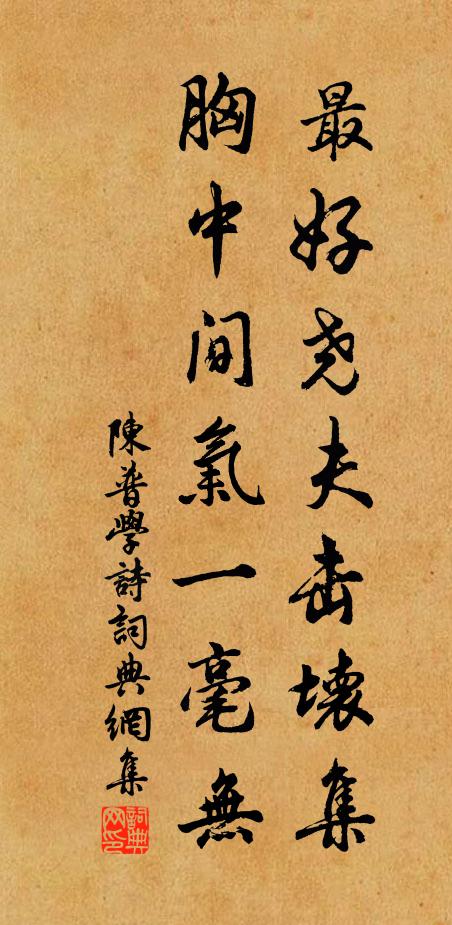 最好尧夫击壤集
胸中闲氣一毫無
陳普學詩詞典網集
詞典網印